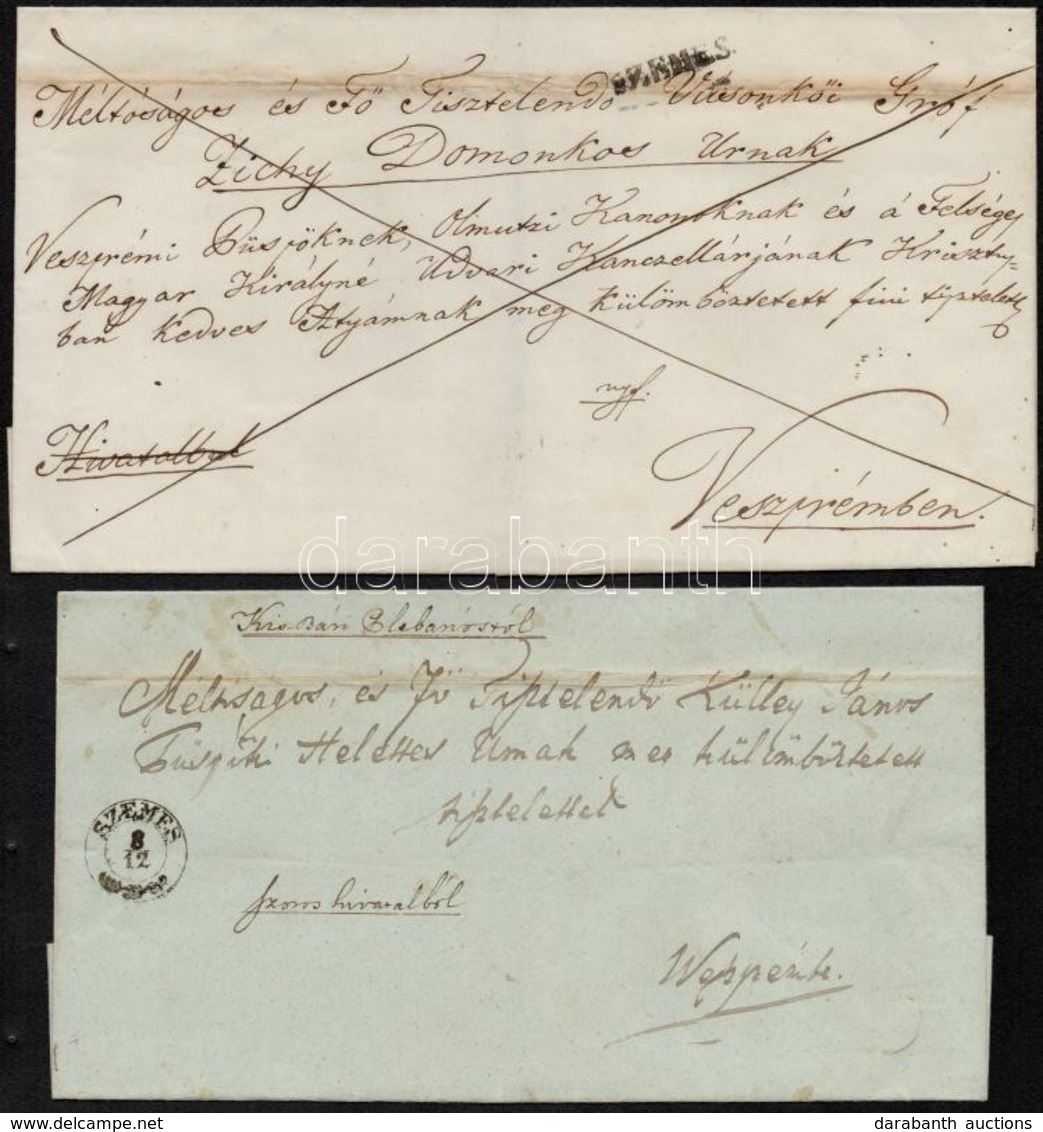 SZEMES.
Méltóságos és Fő Tisztelendő Vásonkői Gróf
Zichy Domonkos Urnak
Veszprémi Püspöknek, Olmutzi Kanonoknak és á Felséges
Magyar Királyné Udvari Kanczellárjának Krisztus=
ban kedves Atyámnak meg külömböztetett fiúi tisztelettel
Hivatalbul
Veszprémben.
darabanth
Kis Bári Plebánostól
Méltóságos, és Fő Tisztelendő Külley János
Püspöki Helettes Urnak meg külömböztetett
tisztelettel
SZEMES
8
12
szoros hivatalból
darabanth auctions